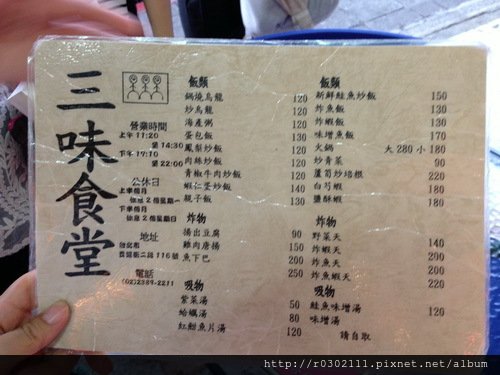 三味食堂
營業時間
上午 11:20
至 14:30
至 22:00
公休日
上半個月
休息 2 個星期一
下半個月
休息 2 個星期日
地址
台北市
116號
電話
(02)2389-2211
飯類
鍋燒烏龍 120
炒烏龍 120
海產粥 120
蛋包飯 130
鳳梨炒飯 120
肉絲炒飯 120
青椒牛肉炒飯 120
蝦仁蛋炒飯 140
親子飯 130
炸物
揚出豆腐 90
雞肉唐揚 150
魚下巴 200
250
吸物
紫菜湯 50
蛤蠣湯 80
紅魽魚片湯 120
飯類
新鮮鮭魚炒飯 150
炸魚飯 130
炸蝦飯 130
味增魚飯 170
火鍋 大 280 小 180
炒青菜 90
蘆筍炒培根 220
白芍蝦 180
鹽酥蝦 180
炸物
野菜天 140
炸蝦天 200
炸魚天 200
炸魚蝦天 220
吸物
鮭魚味增湯 120
味增湯
請自取
http://r0302111.pixnet.net/album